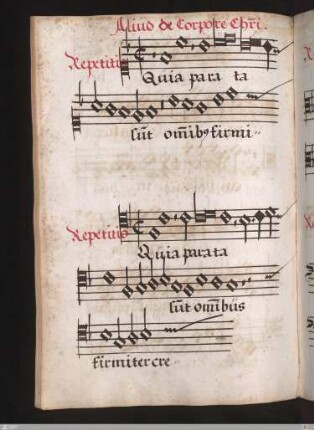 Aliud de Corpore Chri.
Repetitio
Quia para ta
sūt omībꝰ firmi
Repetitio
Quia parata
sūt omībus
firmiter cre